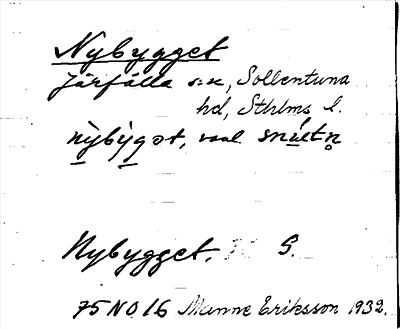 Nybygget
Järfälla sn, Sollentuna
hd, Sthlms l.
nỳbýgət,
Nybygget. G.
75 NO 16 Manne Eriksson 1932.